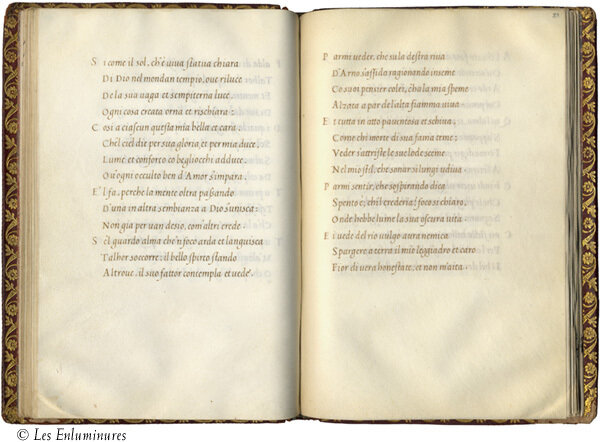 Si come il sol, ch'è viva statua chiara
Di Dio nel mondan tempio, ove riluce
De la sua vaga et sempiterna luce,
Ogni cosa creata orna et rischiara:
Cosi a ciascun questa mia bella et cara,
Che'l ciel die per sua gloria, et per mia duce,
Lume et conforto co begliocchi adduce,
Ov'ogni occulto ben d'Amor s'impara.
E' l fa, perche la mente oltra passando
D'una in altra sembianza a Dio s'unisca:
Non gia per van desio, com'altri crede
Se'l guardo alma che'n foco arda et languisca
Talhor soccorre, il bello spirto stando
Altrove, il suo fattor contempla et vede.
83
Parmi veder, che su la destra riva
D'Arno s'assida ragionando inseme
Co suoi pensier colei, ch'a la mia speme
Alzota a par de l'alta fiamma viva
Et tutta in atto paventosa et schiva,
Come chi morte di sua fama teme:
Veder s'attriste le suelo de sceme
Nel mio stil, che sonar si lungi udiva
Parmi sentir, che sospirando dica
Spento è, ch'il crederia! foco si chiaro,
Onde hebbe lume la sua oscura vita
Et vede del rio vulgo aura nemica
Spargere a terra il mio leggiadro et caro
Fior di vera honestate, et non m'aita.
© Les Enluminures